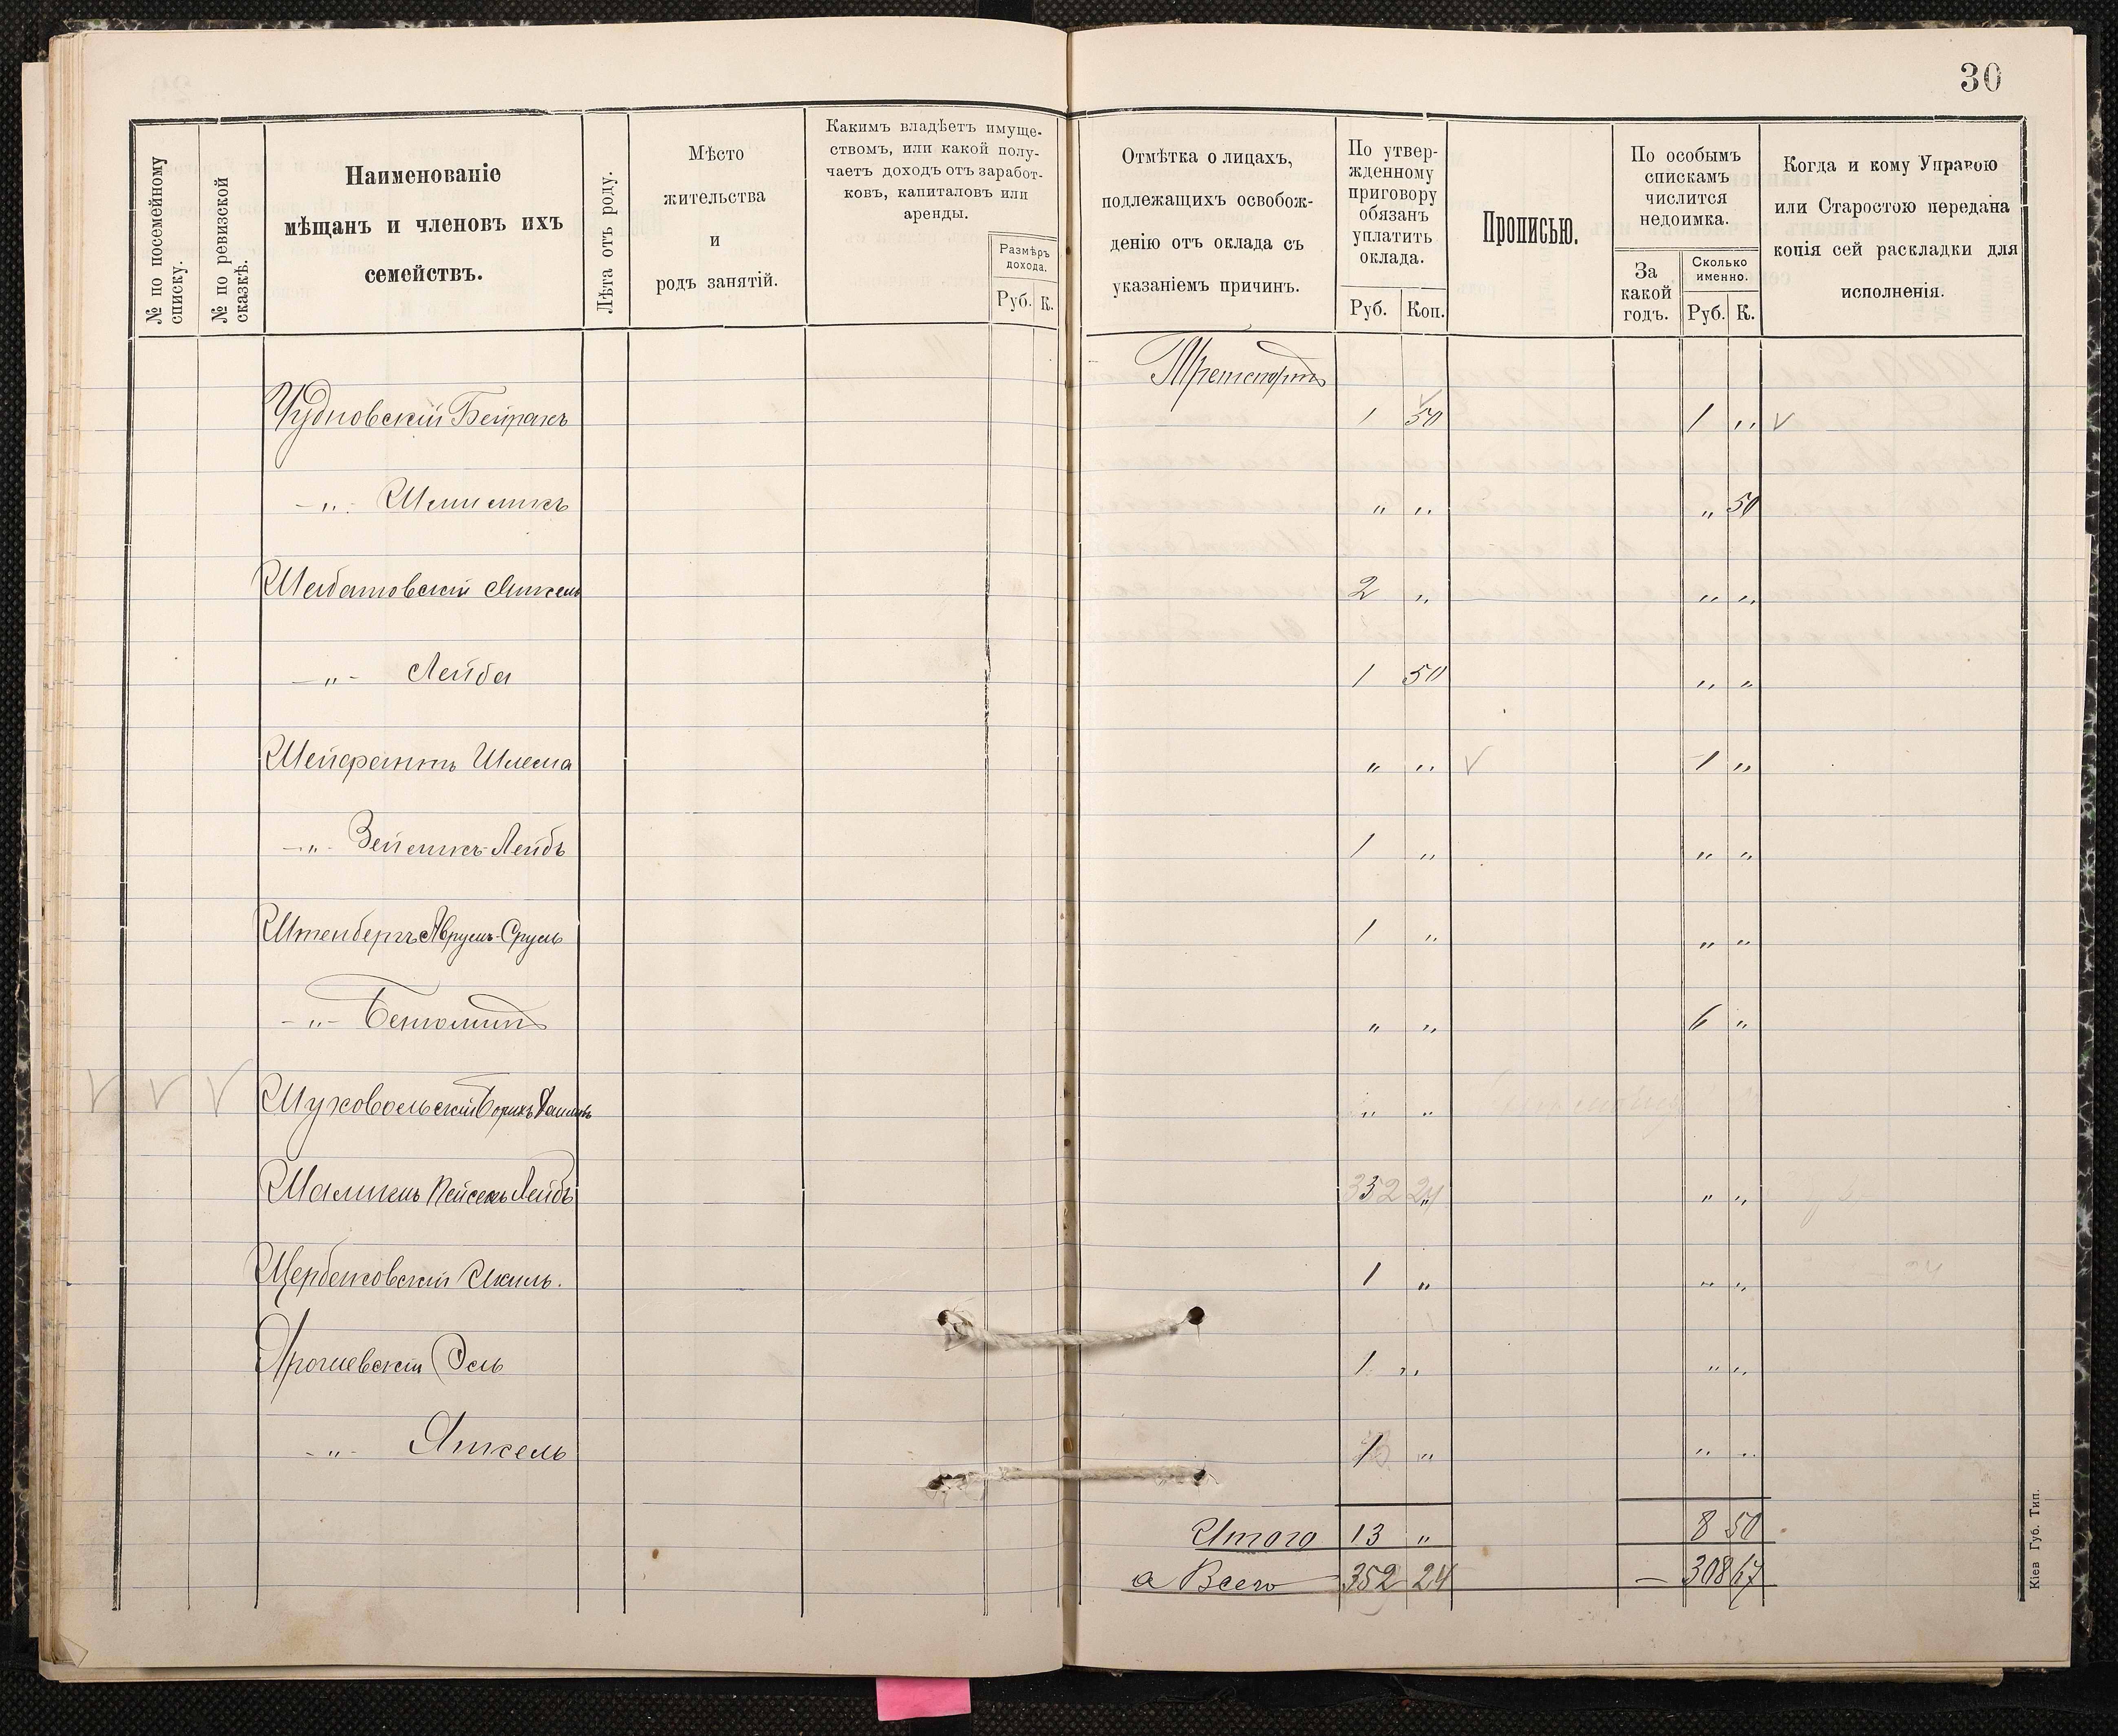 30
№ по посемейному списку.
№ по ревизской сказкѣ.
Наименованіе
мѣщанъ и членовъ ихъ
семействъ.
Лѣта отъ роду.
Мѣсто
жительства
и
родъ занятій.
Какимъ владѣетъ имуще-
ствомъ, или какой полу-
чаетъ доходъ отъ заработ-
ковъ, капиталовъ или
аренды.
Размѣръ
дохода.
Руб. К.
Отмѣтка о лицахъ,
подлежащихъ освобож-
денію отъ оклада съ
указаніемъ причинъ.
По утвер-
жденному
приговору
обязанъ
уплатить
оклада.
Руб. Коп.
Прописью.
По особымъ
спискамъ
числится
недоимка.
За
какой
годъ.
Сколько
именно.
Руб. К.
Когда и кому Управою
или Старостою передана
копія сей раскладки для
исполненія.
Чудновскій 1 50 1 „
-„- Шмиликъ „ „ „ 50
Шабатовскій Янкель 2 „ „ „
-„- Лейба 1 50 „ „
Шлема „ „ 1 „
-„- Зейликъ-Лейбъ 1 „ „ „
Штенбергъ Аврумъ-Сруль 1 „ „ „
-„- „ „ 6 „
„ „
Маликъ Пейсахъ Лейбъ 3 „ „ „
Щербаковскій 1 „ „ „
1 „ „ „
-„- Янкель 1 „ „ „
Итого 13 „ 8 50
а Всего 352 24 — 308 67
Кіев Губ. Тип.